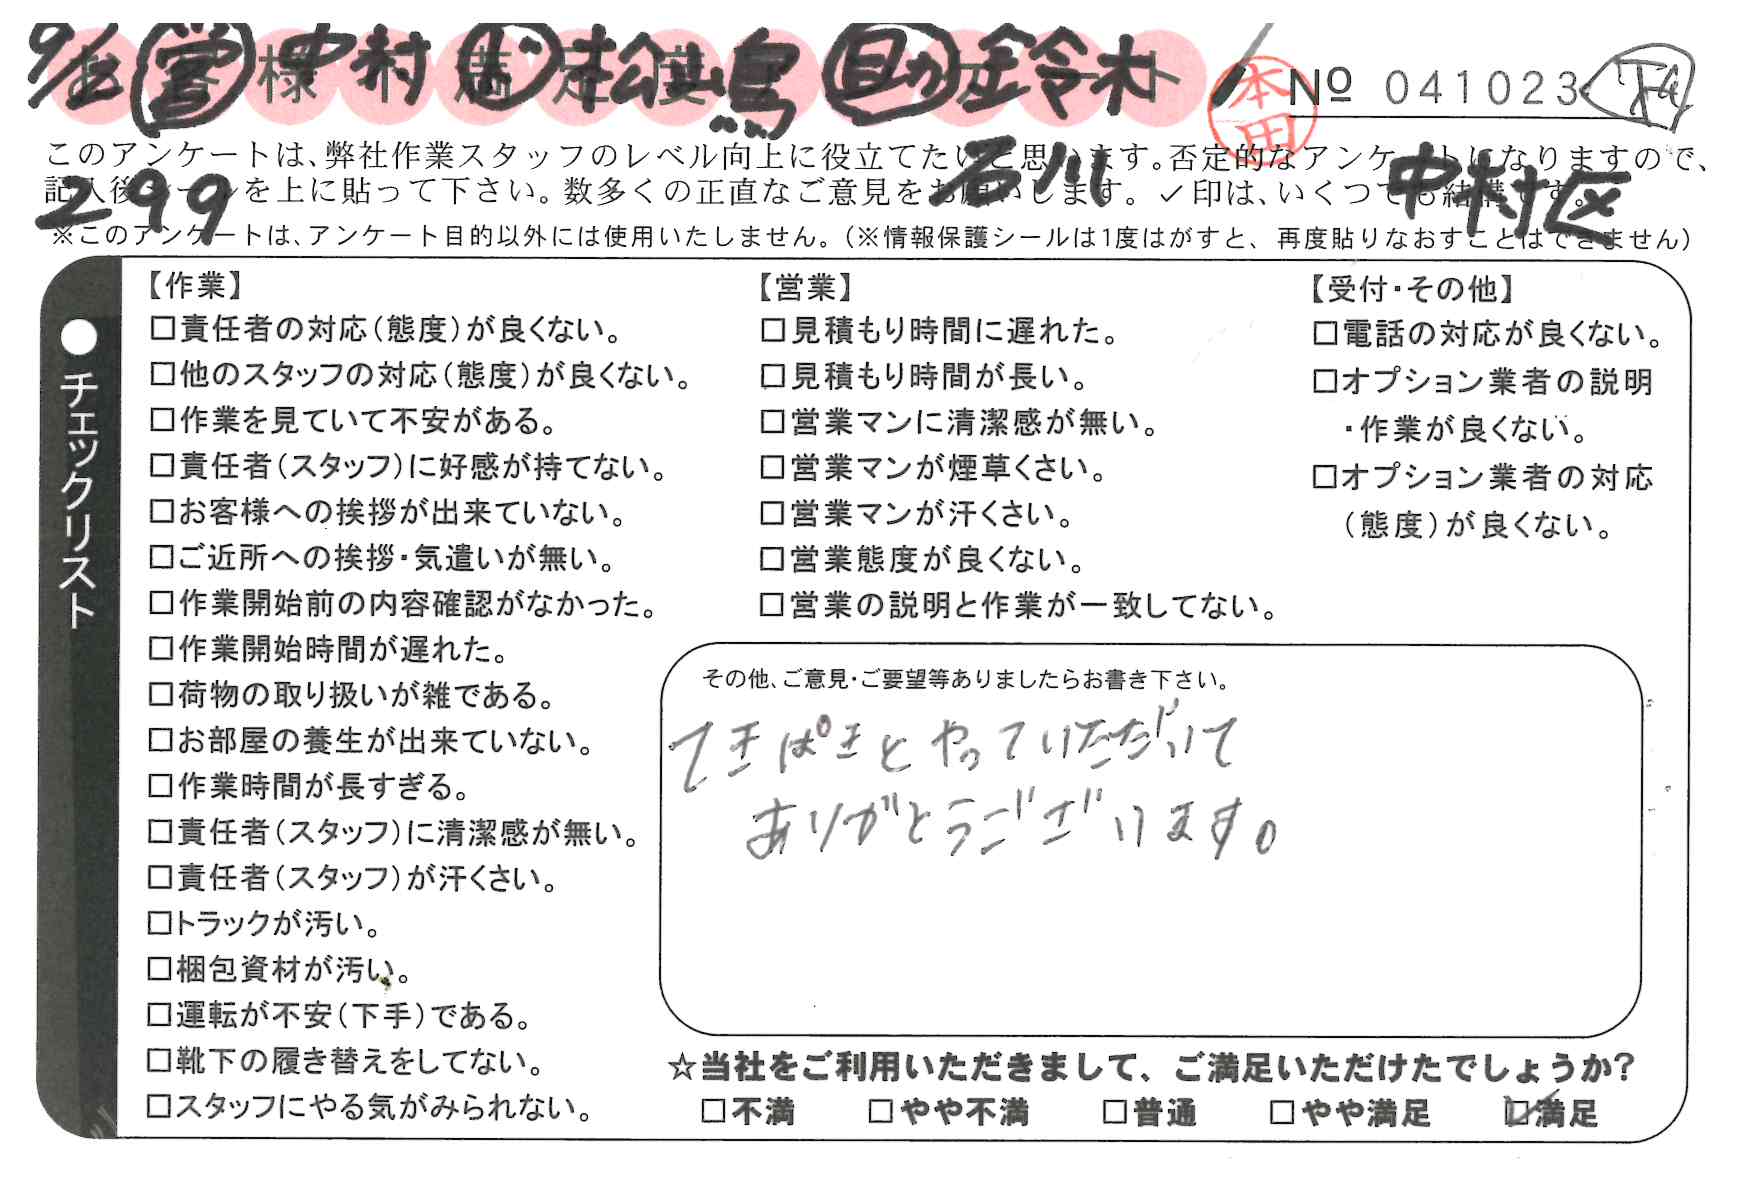 9/2 営 中村 松島 助 鈴木
お客様不満足度アンケート
本田
No 041023
このアンケートは、弊社作業スタッフのレベル向上に役立てたいと思います。否定的なアンケートになりますので、
記入後シールを上に貼って下さい。数多くの正直なご意見をお願いします。✓印は、いくつでも結構です。
299 石川 中村区
※このアンケートは、アンケート目的以外には使用いたしません。（※情報保護シールは1度はがすと、再度貼りなおすことはできません）
●チェックリスト
【作業】
□責任者の対応（態度）が良くない。
□他のスタッフの対応（態度）が良くない。
□作業を見ていて不安がある。
□責任者（スタッフ）に好感が持てない。
□お客様への挨拶が出来ていない。
□ご近所への挨拶・気遣いが無い。
□作業開始前の内容確認がなかった。
□作業開始時間が遅れた。
□荷物の取り扱いが雑である。
□お部屋の養生が出来ていない。
□作業時間が長すぎる。
□責任者（スタッフ）に清潔感が無い。
□責任者（スタッフ）が汗くさい。
□トラックが汚い。
□梱包資材が汚い。
□運転が不安（下手）である。
□靴下の履き替えをしてない。
□スタッフにやる気がみられない。
【営業】
□見積もり時間に遅れた。
□見積もり時間が長い。
□営業マンに清潔感が無い。
□営業マンが煙草くさい。
□営業マンが汗くさい。
□営業態度が良くない。
□営業の説明と作業が一致してない。
【受付・その他】
□電話の対応が良くない。
□オプション業者の説明
・作業が良くない。
□オプション業者の対応
（態度）が良くない。
その他、ご意見・ご要望等ありましたらお書き下さい。
てきぱきとやっていただいて
ありがとうございます。
☆当社をご利用いただきまして、ご満足いただけたでしょうか？
□不満 □やや不満 □普通 □やや満足 ☑満足